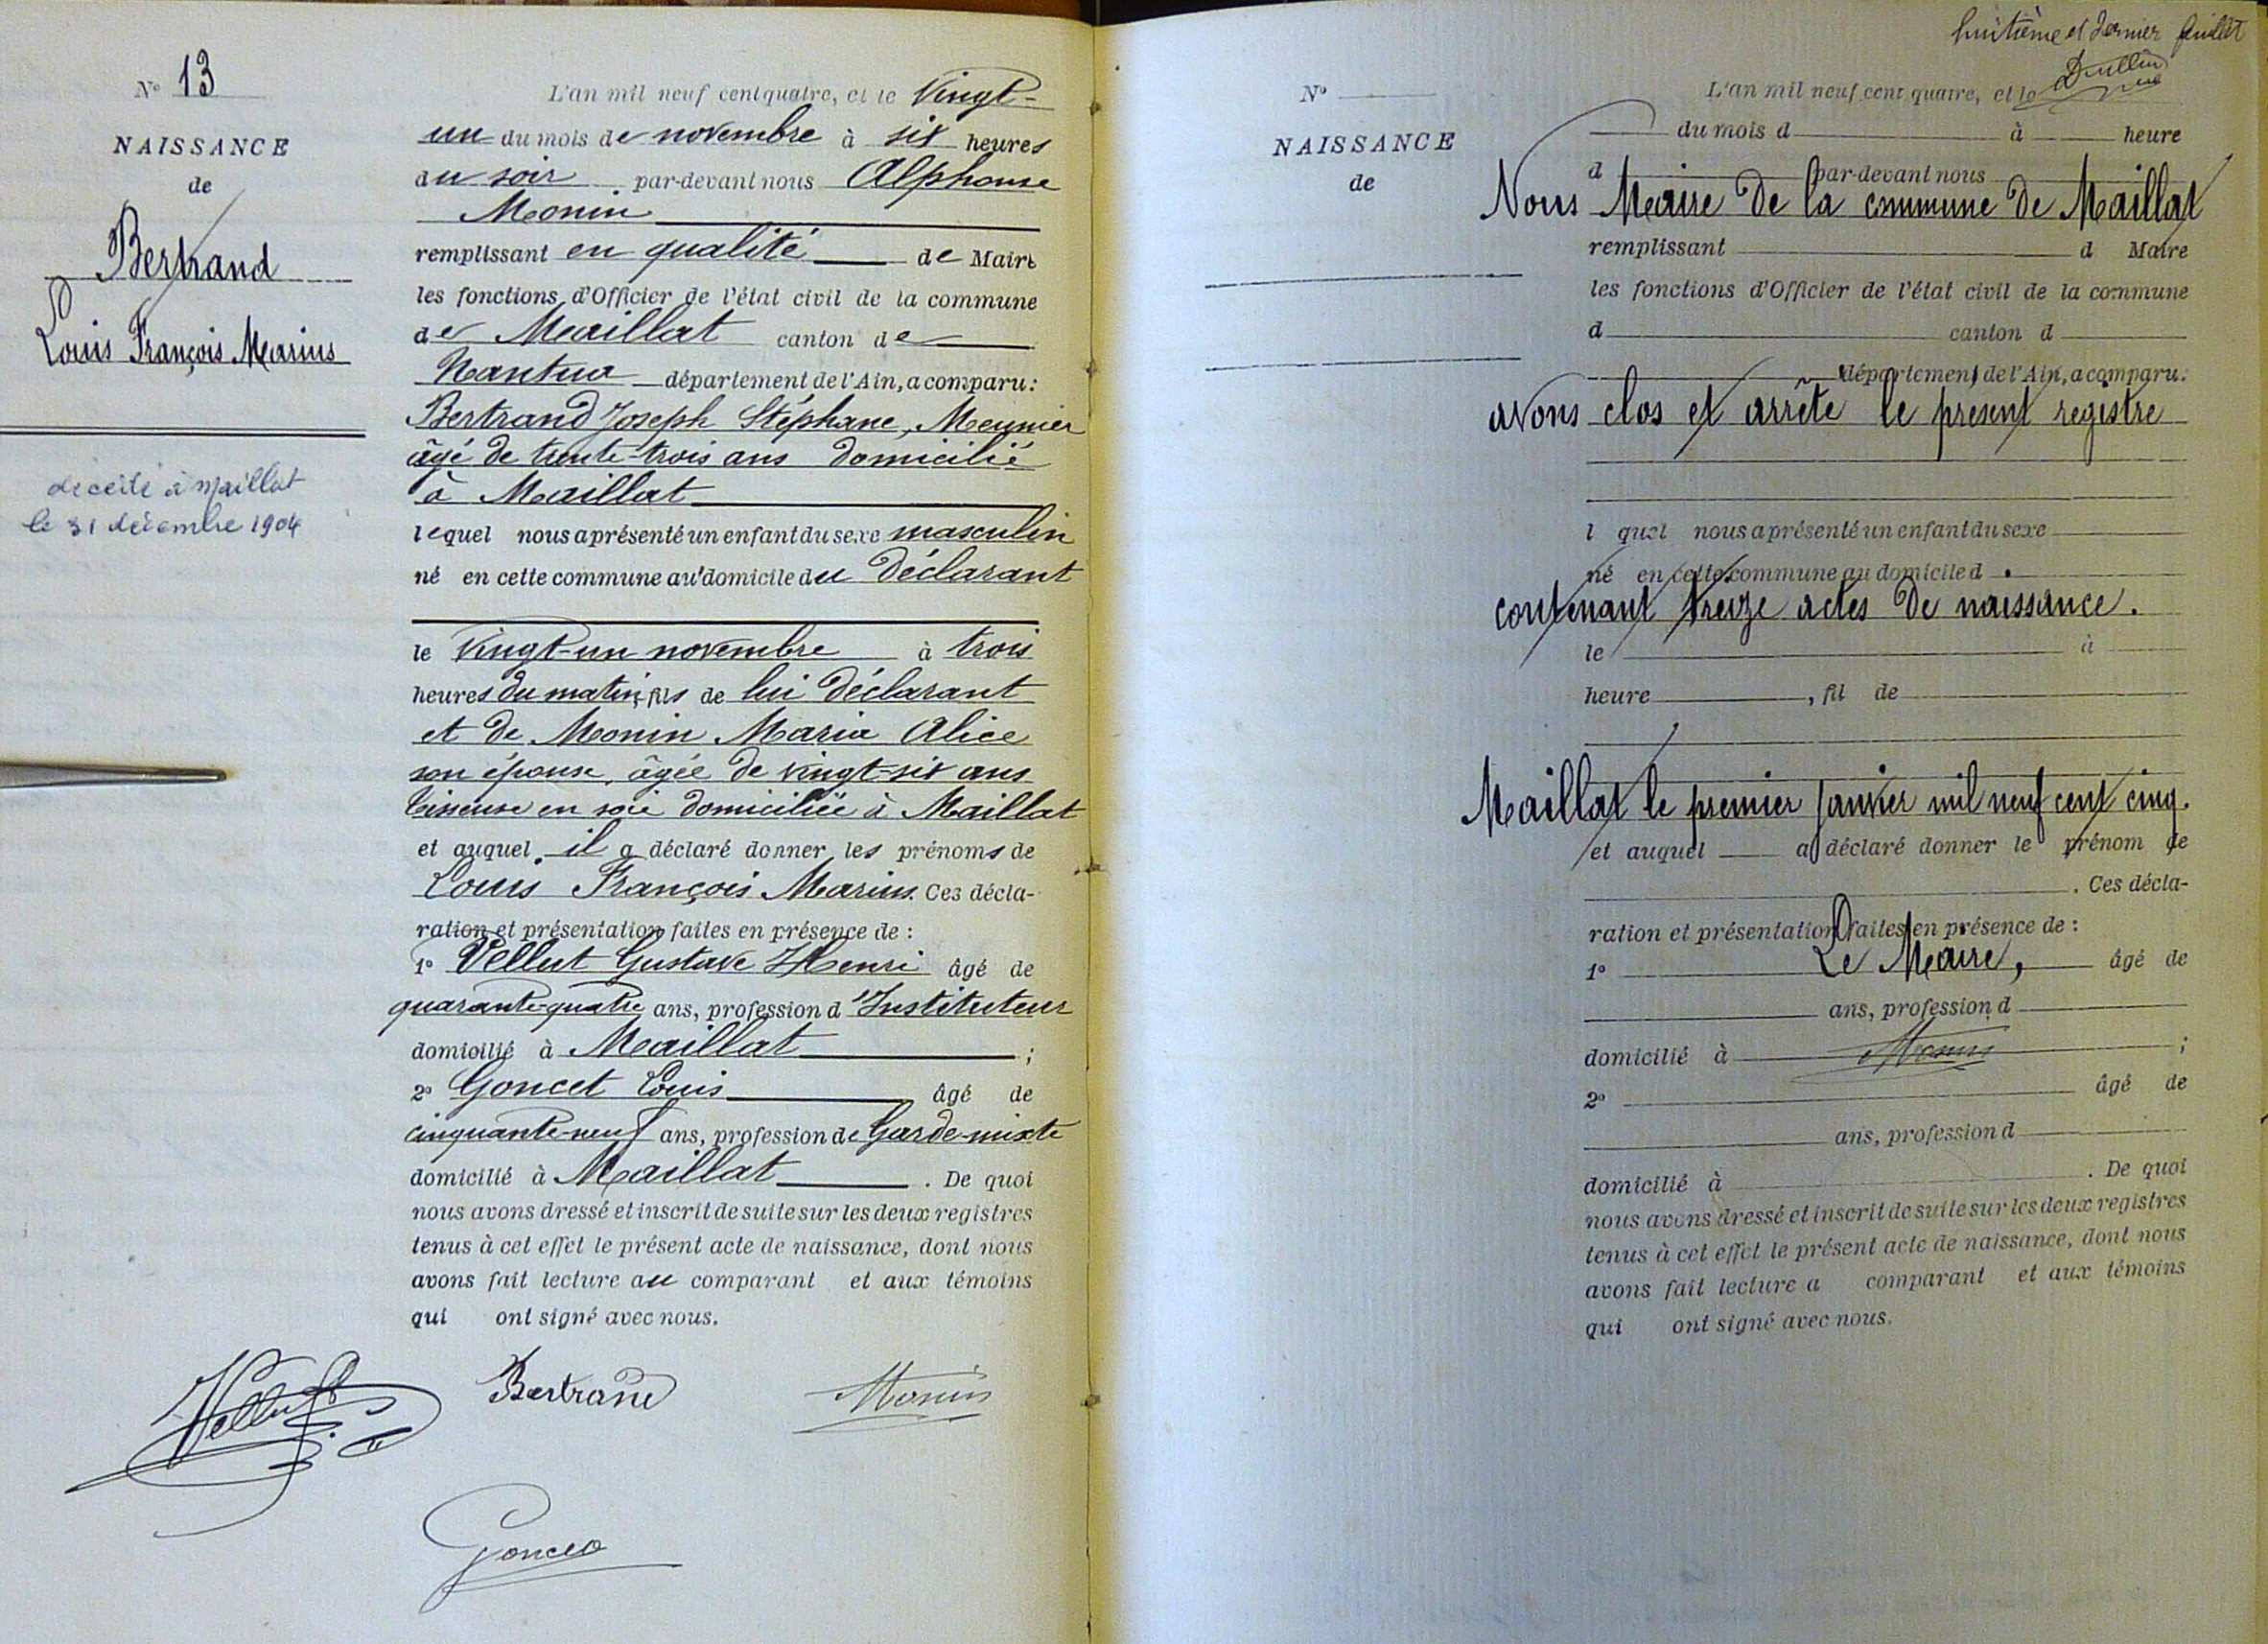 N° 13
NAISSANCE
de
Bertrand
Louis François Marius
décédé à Maillat
le 31 décembre 1904
L'an mil neuf cent quatre, et le Vingt-
un du mois de novembre à six heures
du soir par-devant nous Alphonse
Monin
remplissant en qualité de Maire
les fonctions d'Officier de l'état civil de la commune
de Maillat canton de
Nantua département de l'Ain, a comparu:
Bertrand Joseph Stéphane, Meunier
âgé de trente-trois ans domicilié
à Maillat
lequel nous a présenté un enfant du sexe masculin
né en cette commune au domicile du déclarant
le Vingt-un novembre à trois
heures du matin, fils de lui déclarant
et de Monin Maria Alice
son épouse, âgée de vingt-six ans
tisseuse en soie domiciliée à Maillat
et auquel il a déclaré donner les prénoms de
Louis François Marius. Ces décla-
ration et présentation faites en présence de :
1° Vellut Gustave Henri âgé de
quarante-quatre ans, profession d'Instituteur
domicilié à Maillat ;
2° Goncet Louis âgé de
cinquante-neuf ans, profession de Garde-mixte
domicilié à Maillat . De quoi
nous avons dressé et inscrit de suite sur les deux registres
tenus à cet effet le présent acte de naissance, dont nous
avons fait lecture au comparant et aux témoins
qui ont signé avec nous.
Vellut Bertrand Monin
Goncet
huitième et dernier feuillet
N°
NAISSANCE
de
L'an mil neuf cent quatre, et le
du mois d à heure
d par-devant nous
Nous Maire de la commune de Maillat
remplissant d Maire
les fonctions d'Officier de l'état civil de la commune
d canton d
département de l'Ain, a comparu:
avons clos et arrêté le present registre
l quel nous a présenté un enfant du sexe
né en cette commune au domicile d
contenant treize actes de naissance.
le à
heure , fil de
Maillat le premier janvier mil neuf cent cinq.
et auquel a déclaré donner le prénom de
. Ces décla-
ration et présentation faites en présence de :
1° Le Maire, âgé de
ans, profession d
domicilié à Monin ;
2° âgé de
ans, profession d
domicilié à . De quoi
nous avons dressé et inscrit de suite sur les deux registres
tenus à cet effet le présent acte de naissance, dont nous
avons fait lecture a comparant et aux témoins
qui ont signé avec nous.